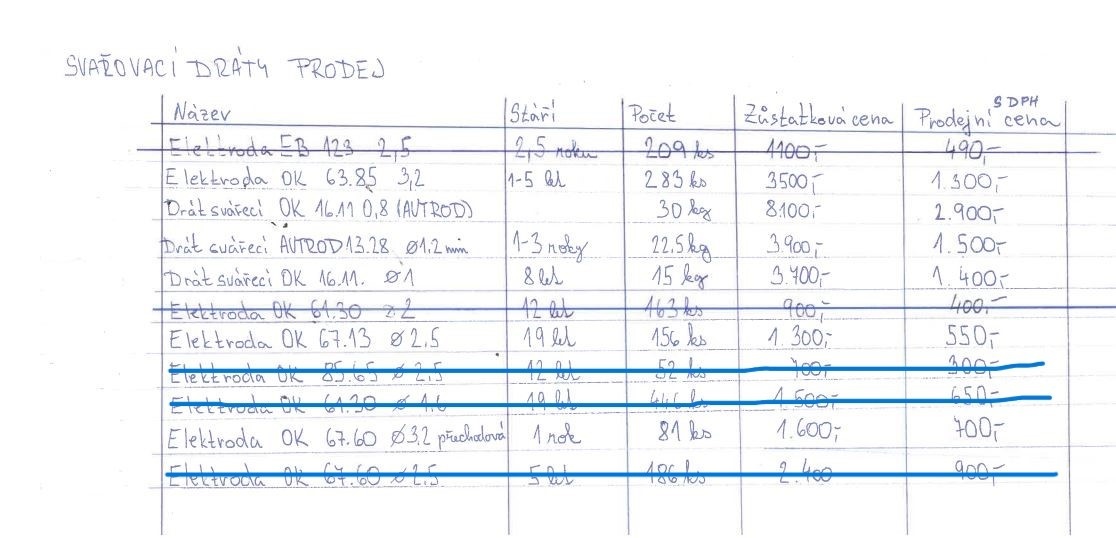 SVAŘOVACÍ DRÁTY PRODEJ
Název Stáří Počet Zůstatková cena Prodejní cena S DPH
Elektroda EB 123 2,5 2,5 roku 209 ks 1100,- 490,-
Elektroda OK 63.85 3,2 1-5 let 283 ks 3500,- 1.300,-
Drát svářecí OK 16.11 0,8 (AUTROD) 30 kg 8100,- 2.900,-
Drát svářecí AUTROD 13.28 ø1.2 mm 1-3 roky 22,5 kg 3.900,- 1.500,-
Drát svářecí OK 16.11. ø1 8 let 15 kg 3.700,- 1.400,-
Elektroda OK 61.30 ø2 12 let 163 ks 900,- 400,-
Elektroda OK 67.13 ø2,5 19 let 156 ks 1.300,- 550,-
Elektroda OK 85.65 ø2,5 12 let 52 ks 700,- 300,-
Elektroda OK 61.30 ø1,6 19 let ks 1.500,- 650,-
Elektroda OK 67.60 ø3,2 přechodová 1 rok 81 ks 1.600,- 700,-
Elektroda OK 67.60 ø2,5 5 let 186 ks 2.400 900,-